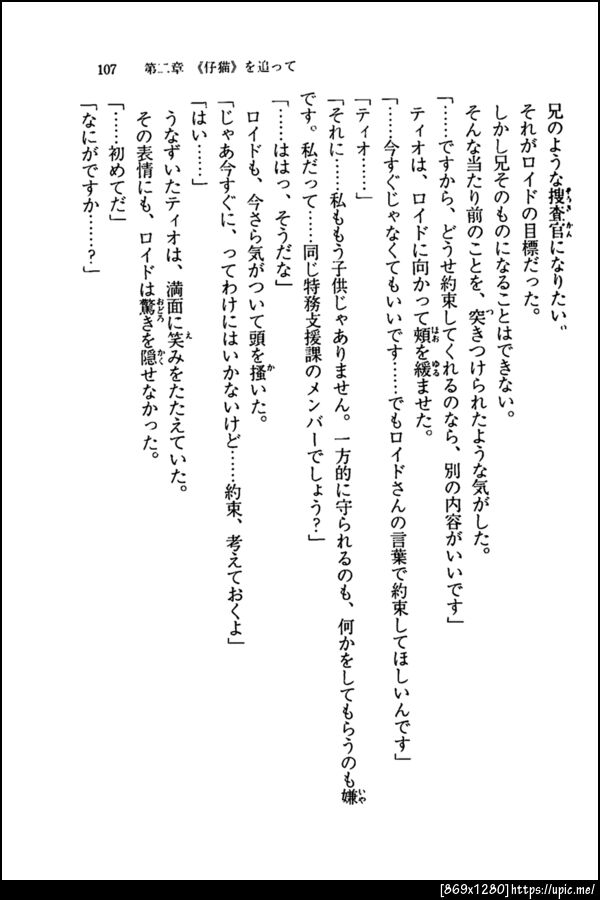 107　第二章　《仔猫》を追って
兄のような捜査官になりたい。
それがロイドの目標だった。
しかし兄そのものになることはできない。
そんな当たり前のことを、突きつけられたような気がした。
「……ですから、どうせ約束してくれるのなら、別の内容がいいです」
ティオは、ロイドに向かって頬を緩ませた。
「……今すぐじゃなくてもいいです……でもロイドさんの言葉で約束してほしいんです」
「ティオ……」
「それに……私ももう子供じゃありません。一方的に守られるのも、何かをしてもらうのも嫌
です。私だって……同じ特務支援課のメンバーでしょう？」
「……ははっ、そうだな」
ロイドも、今さら気がついて頭を掻いた。
「じゃあ今すぐに、ってわけにはいかないけど……約束、考えておくよ」
「はい……」
うなずいたティオは、満面に笑みをたたえていた。
その表情にも、ロイドは驚きを隠せなかった。
「……初めてだ」
「なにがですか……？」
[869x1280]https://upic.me/